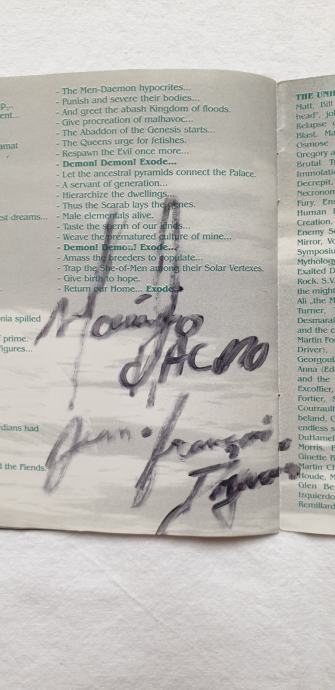 - The Men-Daemon hypocrites...
- Punish and severe their bodies...
- And greet the abash Kingdom of floods.
- Give procreation of malhavoc...
- The Abaddon of the Genesis starts...
- The Queens urge for fetishes.
- Respawn the Evil once more...
- Demon! Demon! Exode...
- Let the ancestral pyramids connect the Palace.
- A servant of generation...
- Hierarchize the dwellings...
- Thus the Scarab lays the
- Male elementals alive.
- Taste the of our
- Weave the premature culture of mine...
- Demon! Exode...
- Amass the breeders to populate...
- Trap the She-of-Men among their Solar Vertexes.
- Give birth to hope.
- Return our Home... Exode
est dreams...
onia spilled
prime.
figures...
rdians had
d the Fiends.
D'ACMO
Jean-François
THE UNH
Matt, Bill
head", Jo
Relapse
Blast, Ma
Osmose
Gregory a
Brutal T
Immolati
Decept,
Necronom
Fury, Ens
Human
Creation,
Enemy S
Mirror, Vo
Symposiu
Mythology
Exalted D
Rock, S.V.
the might
Ali
Turner,
Desmarai
and the c
Martin Fo
Driver),
Georgoul
Anna (Ed
and the
Excoffier,
Portier,
Courtault
beland, C
endless s
Duhamel
Morris,
Ginette B
Martin Ch
Houde, M
Glen Be
Izquierdo
Remillard